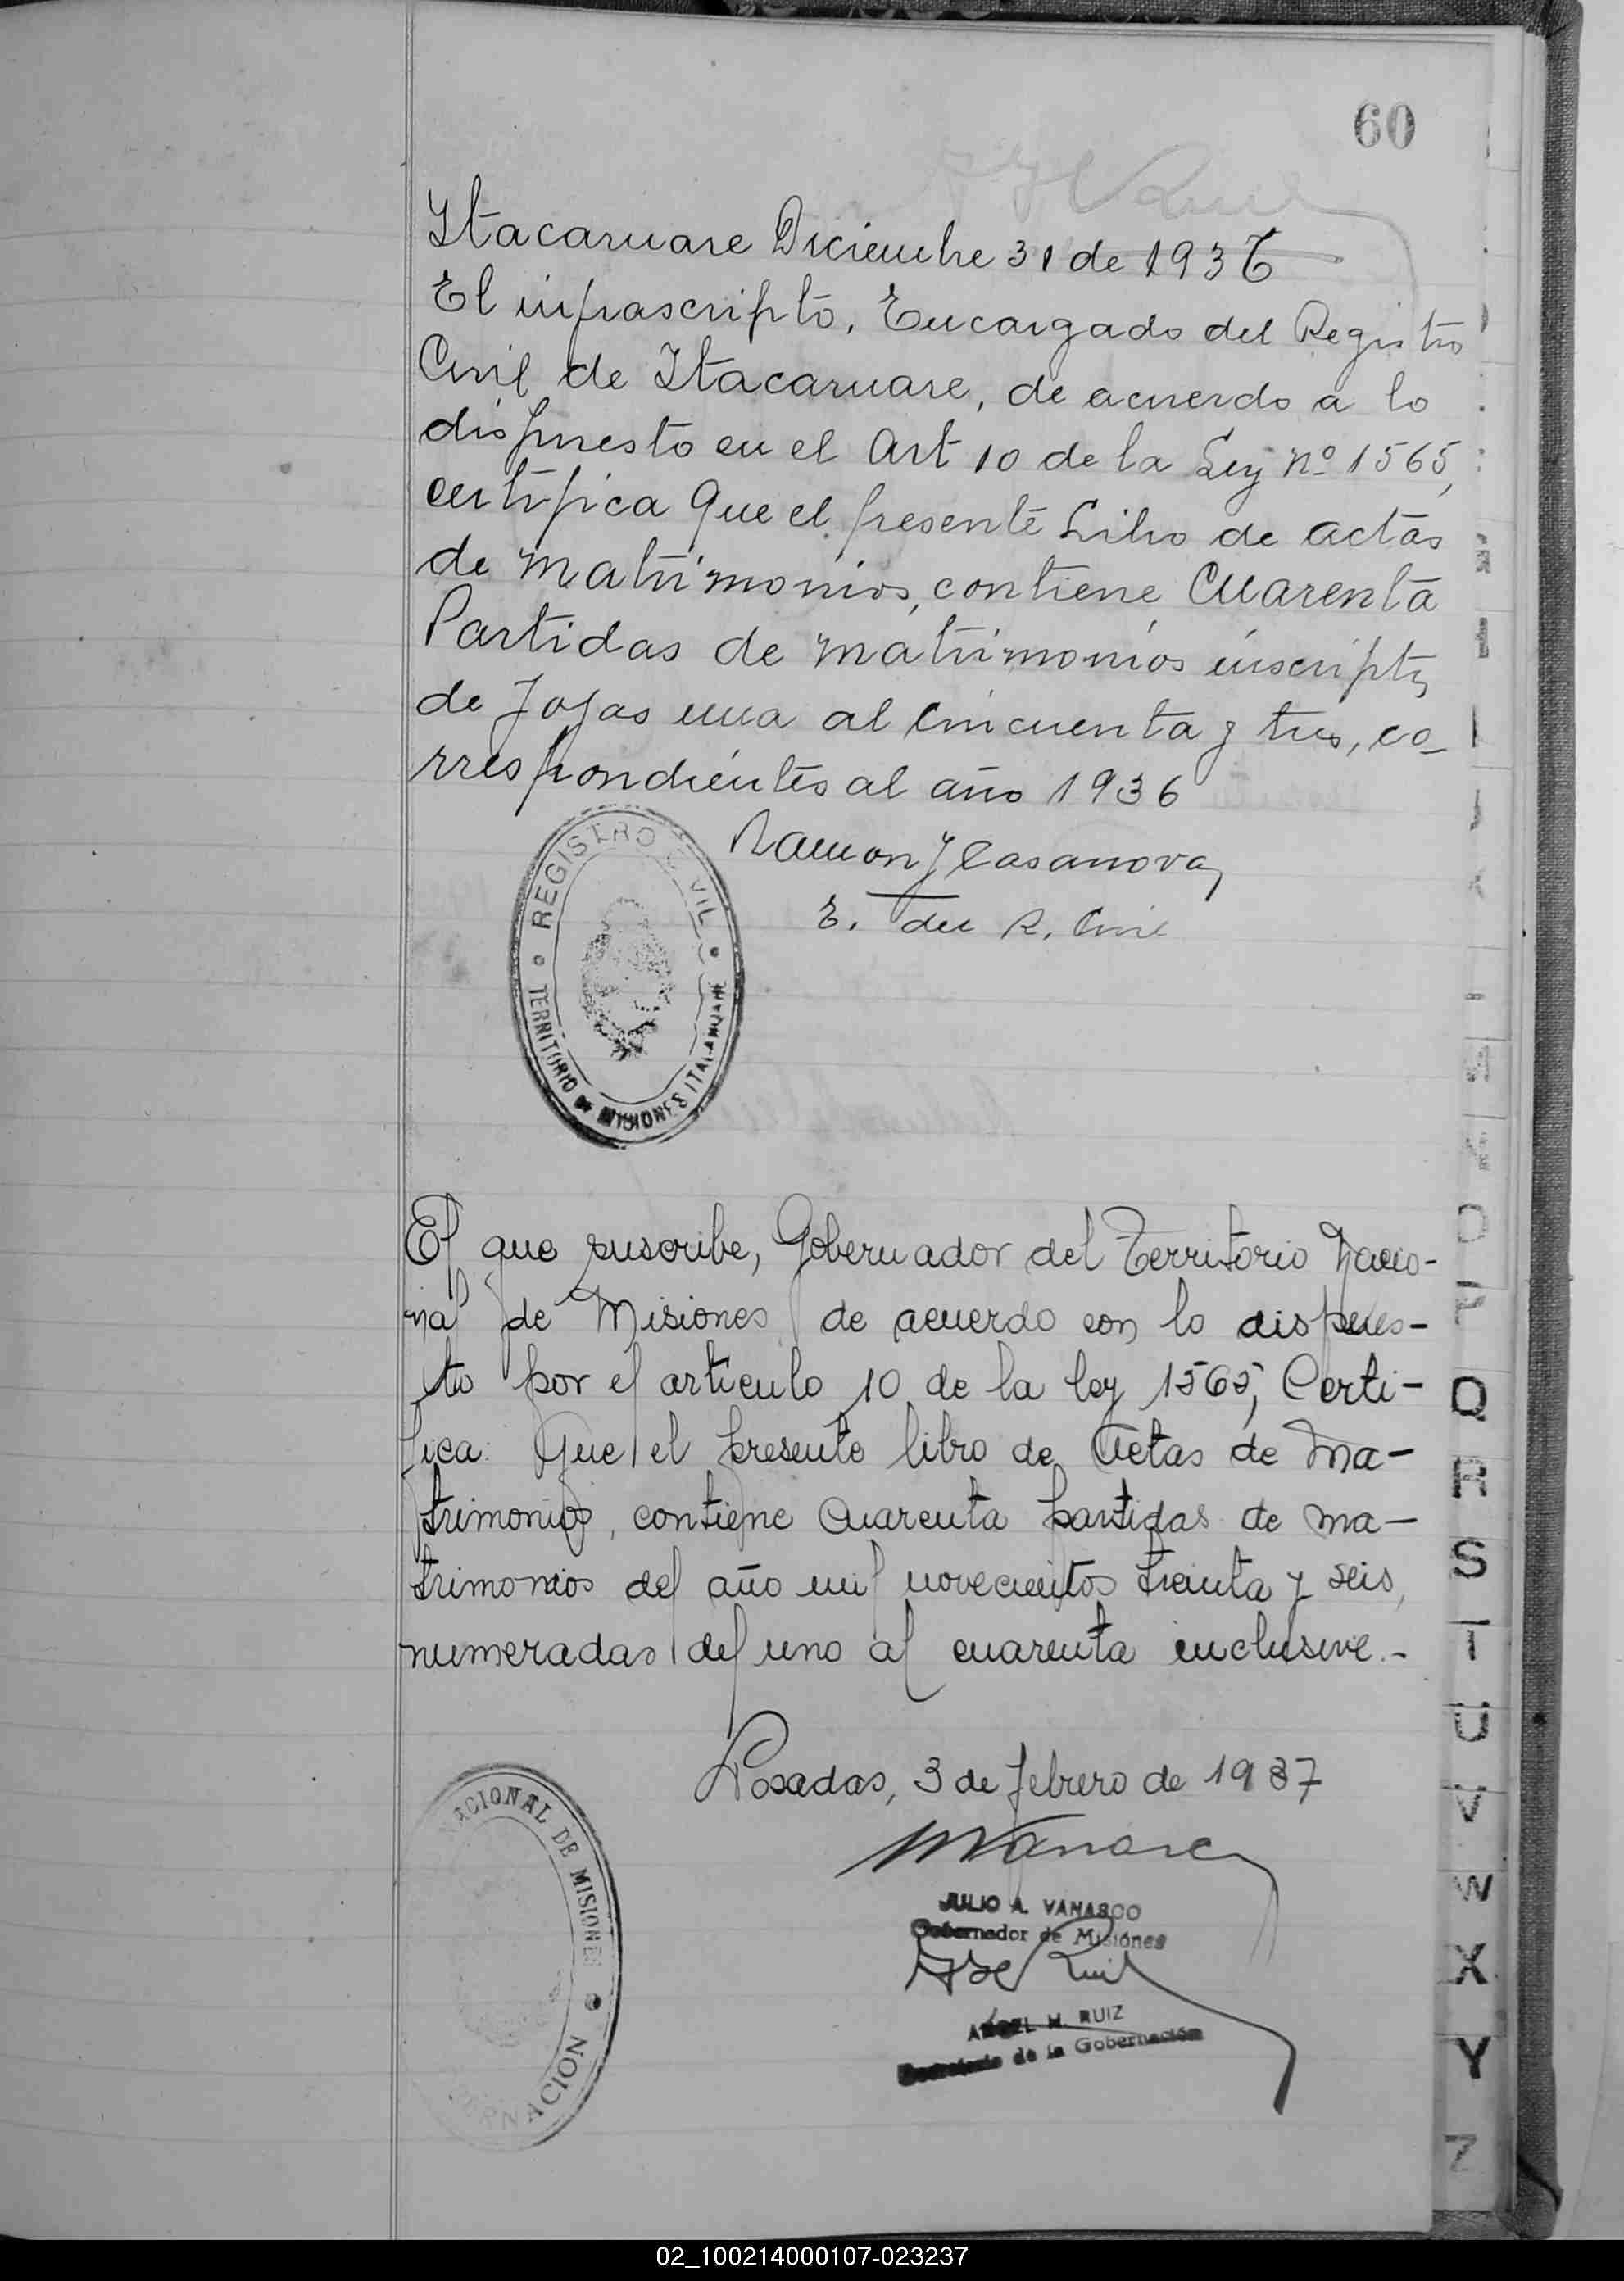 60
Itacaruare Diciembre 31 de 1936
El infrascripto, Encargado del Registro
Civil de Itacaruare, de acuerdo a lo
dispuesto en el Art 10 de la Ley nº 1565,
certifica Que el presente Libro de actas
de matrimonios, contiene Cuarenta
Partidas de matrimonios inscriptas
de Fojas una al Cincuenta y tres, co-
rrespondientes al año 1936
Ramon J Casanova
E. del R. Civil
REGISTRO CIVIL
TERRITORIO DE MISIONES ITACARUARE
El que suscribe, Gobernador del Territorio Nacio-
nal de Misiones de acuerdo con lo dispues-
to por el articulo 10 de la ley 1565, Certi-
fica: Que el presente libro de Actas de Ma-
trimonios, contiene cuarenta partidas de ma-
trimonios del año mil novecientos treinta y seis,
numeradas del uno al cuarenta inclusive.-
Posadas, 3 de febrero de 1937
NACIONAL DE MISIONES
JULIO A. VANASCO
Gobernador de Misiones
ANGEL H. RUIZ
Secretario de la Gobernación
O
P
Q
R
S
T
U
V
W
X
Y
Z
02_100214000107-023237